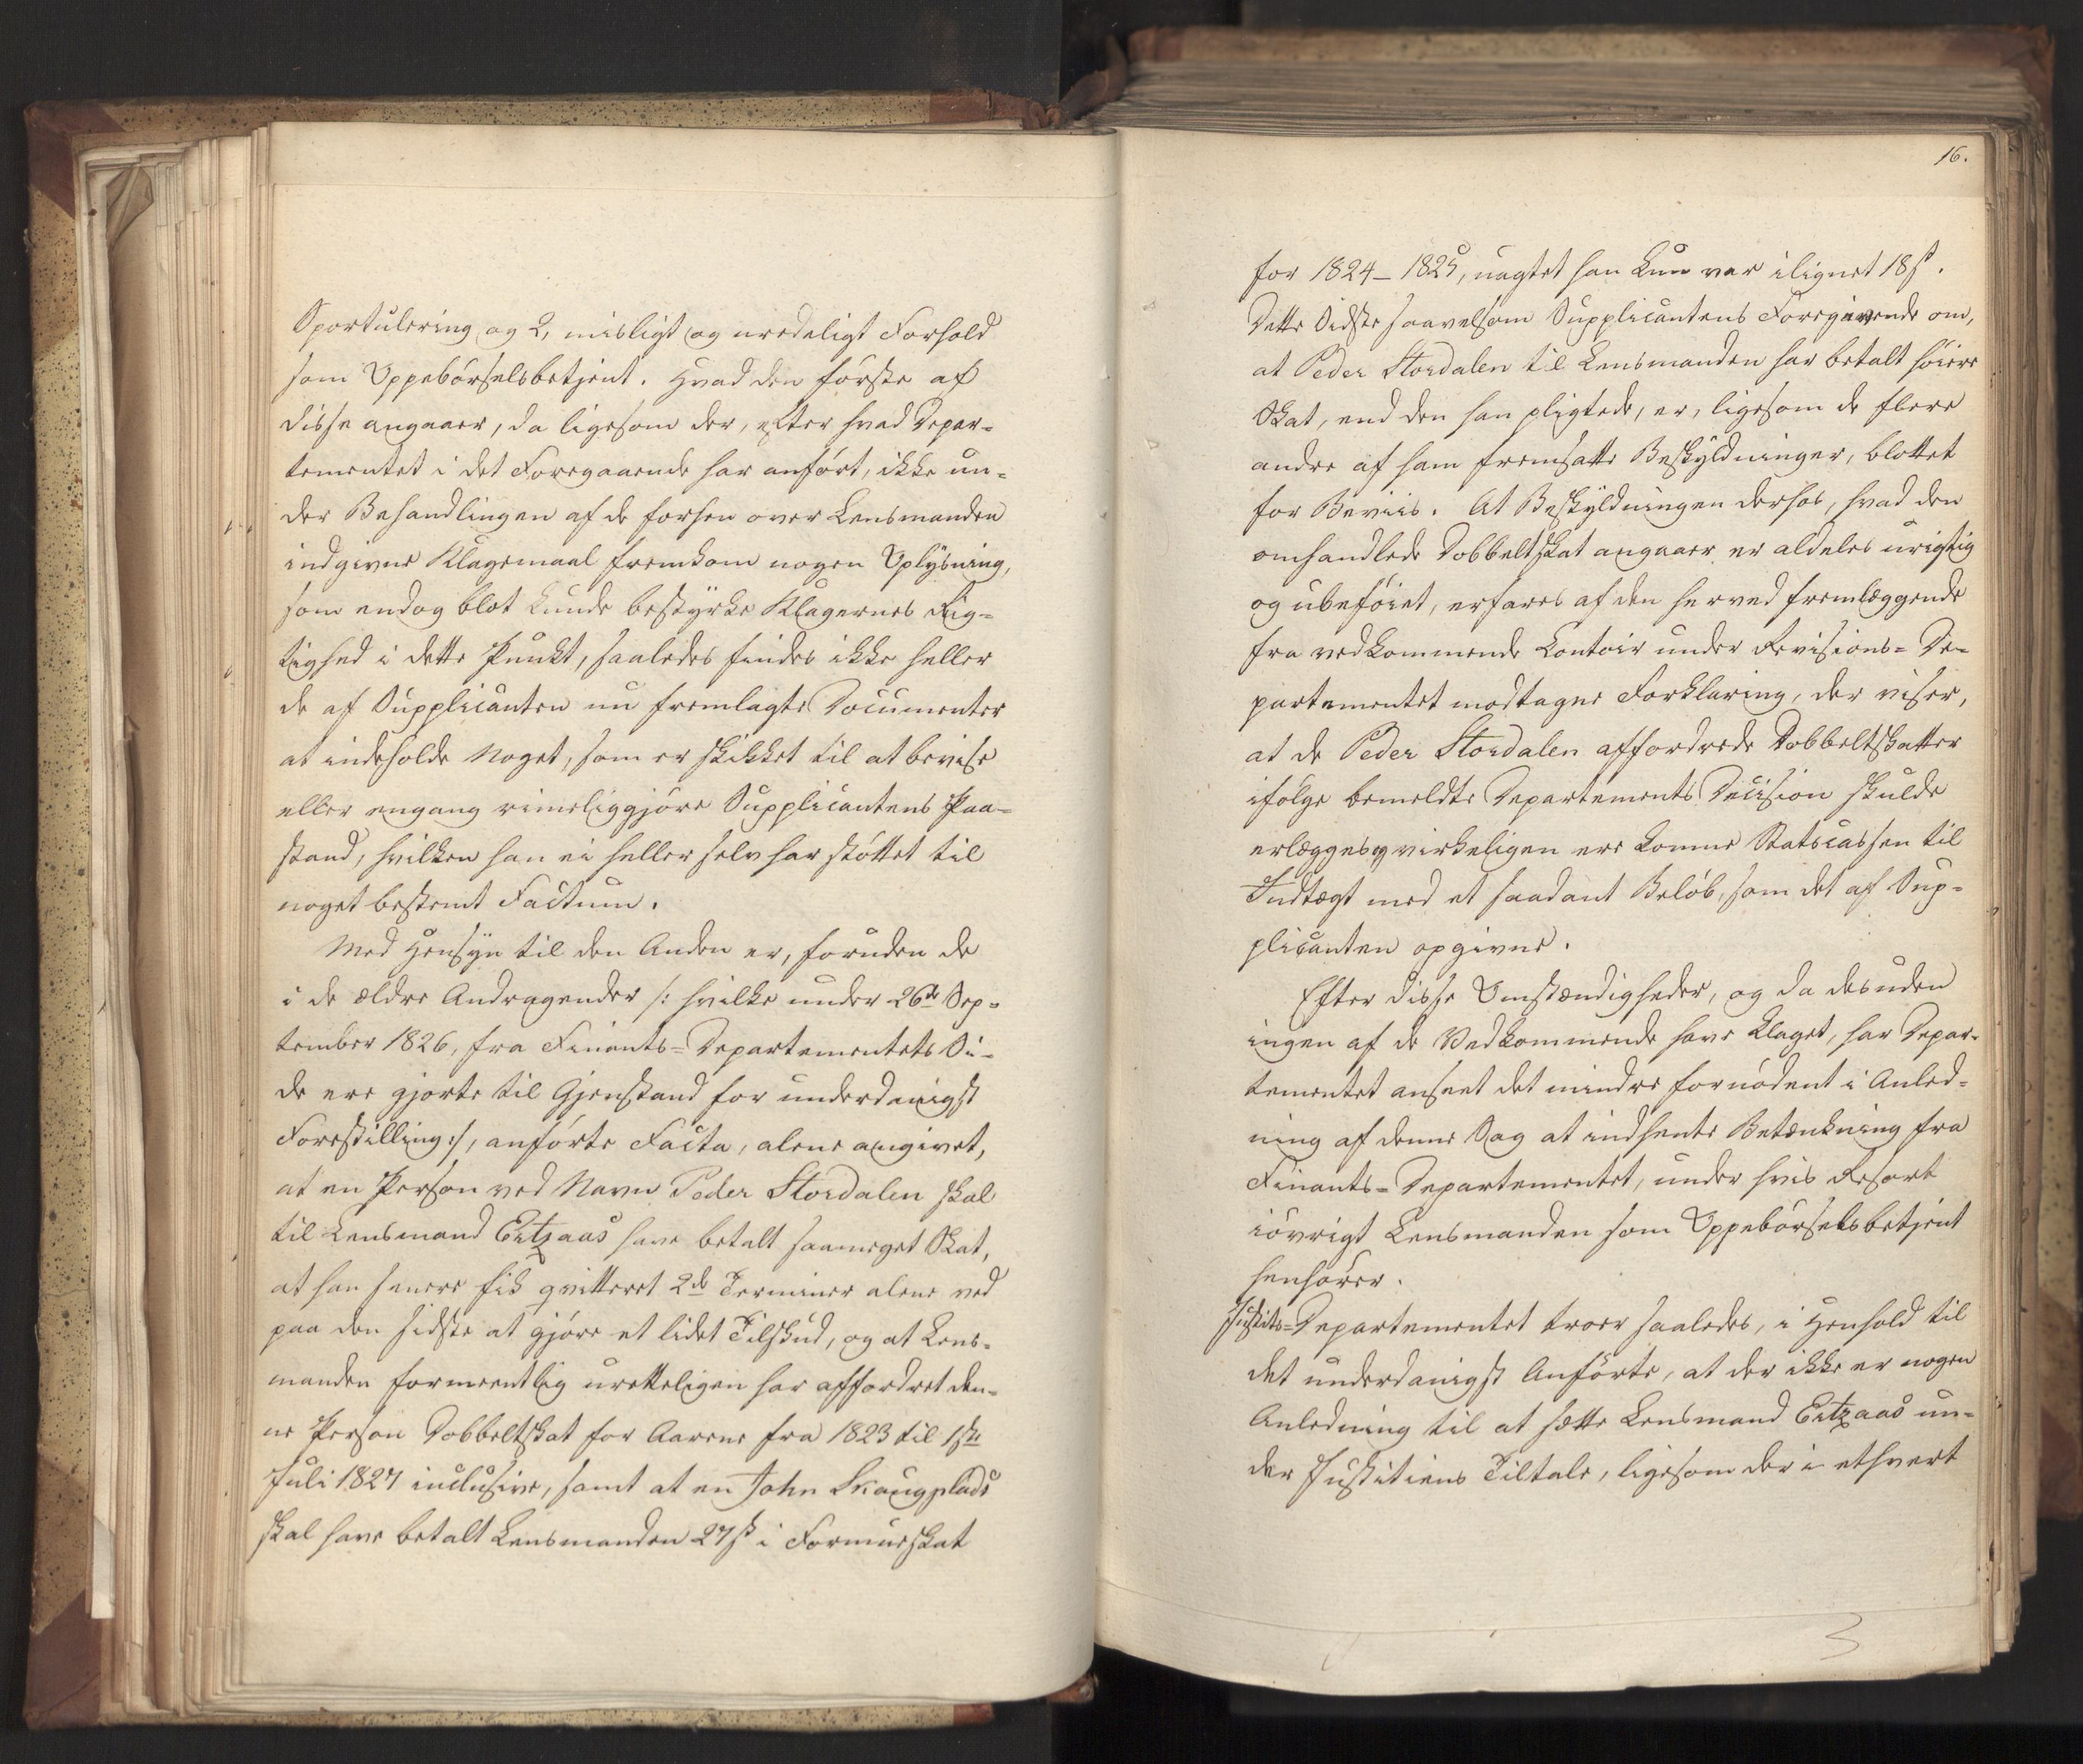 Sportulering og 2, misligt og uredeligt Forhold
som Oppebørselsbetjent. Hvad den første af
disse angaaer, da ligesom der, efter hvad Depar-
tementet i det Foregaaende har anført, ikke un-
der Behandlingen af de forhen over Lensmanden
indgivne Klagemaal fremkom nogen Oplysning,
som endog blot kunde bestyrke Klagernes Rig-
tighed i dette Punkt, saaledes findes ikke heller
de af Supplicanten nu fremlagte Documenter
at indeholde Noget, som er skikket til at bevise
eller engang rimeliggjøre Supplicantens Paa-
stand, hvilken han ei heller selv har støttet til
noget bestemt Factum.
Med Hensyn til den Anden er, foruden de
i de ældre Andragender /: hvilke under 26de Sep-
tember 1826, fra Finants-Departementets Si-
de ere gjorte til Gjenstand for underdanigst
Forestilling :/, anførte Facta, alene angivet,
at en Person ved Navn Peder Stordalen skal
til Lensmand Ertzaas have betalt saameget Skat,
at han senere fik qvitteret 2de Terminer alene ved
paa den sidste at gjøre et lidet Tilskud, og at Lens-
manden formeentlig uretteligen har affordret den-
ne Person Dobbeltskat for Aarene fra 1823 til 1ste
Juli 1827 inclusive, samt at en John Skaugplads
skal have betalt Lensmanden 27 s i Formueskat
16.
for 1824-1825, uagtet han kun var ilignet 18 s.
Dette Sidste saavelsom Supplicantens Foregivende om,
at Peder Stordalen til Lensmanden har betalt høiere
Skat, end den han pligtede, er, ligesom de flere
andre af ham fremsatte Beskyldninger, blottet
for Beviis. At Beskyldningen derhos, hvad den
omhandlede Dobbeltskat angaaer er aldeles urigtig
og ubeføiet, erfares af den herved fremlæggende
fra vedkommende Contoir under Revisions-De-
partementet modtagne Forklaring, der viser,
at de Peder Stordalen affordrede Dobbeltskatter
ifølge bemeldte Departements Decision skulde
erlægges og virkeligen ere komne Statscassen til
Indtægt med et saadant Beløb, som det af Sup-
plicanten opgivne.
Efter disse Omstændigheder, og da desuden
ingen af de Vedkommende have klaget, har Depar-
tementet anseet det mindre fornødent i Anled-
ning af denne Sag at indhente Betænkning fra
Finants-Departementet, under hvis Resort
iøvrigt Lensmanden som Oppebørselsbetjent
henhører.
Justits-Departementet troer saaledes, i Henhold til
det underdanigst Anførte, at der ikke er nogen
Anledning til at sætte Lensmand Ertzaas un-
der Justitiens Tiltale, ligesom der i ethvert
3